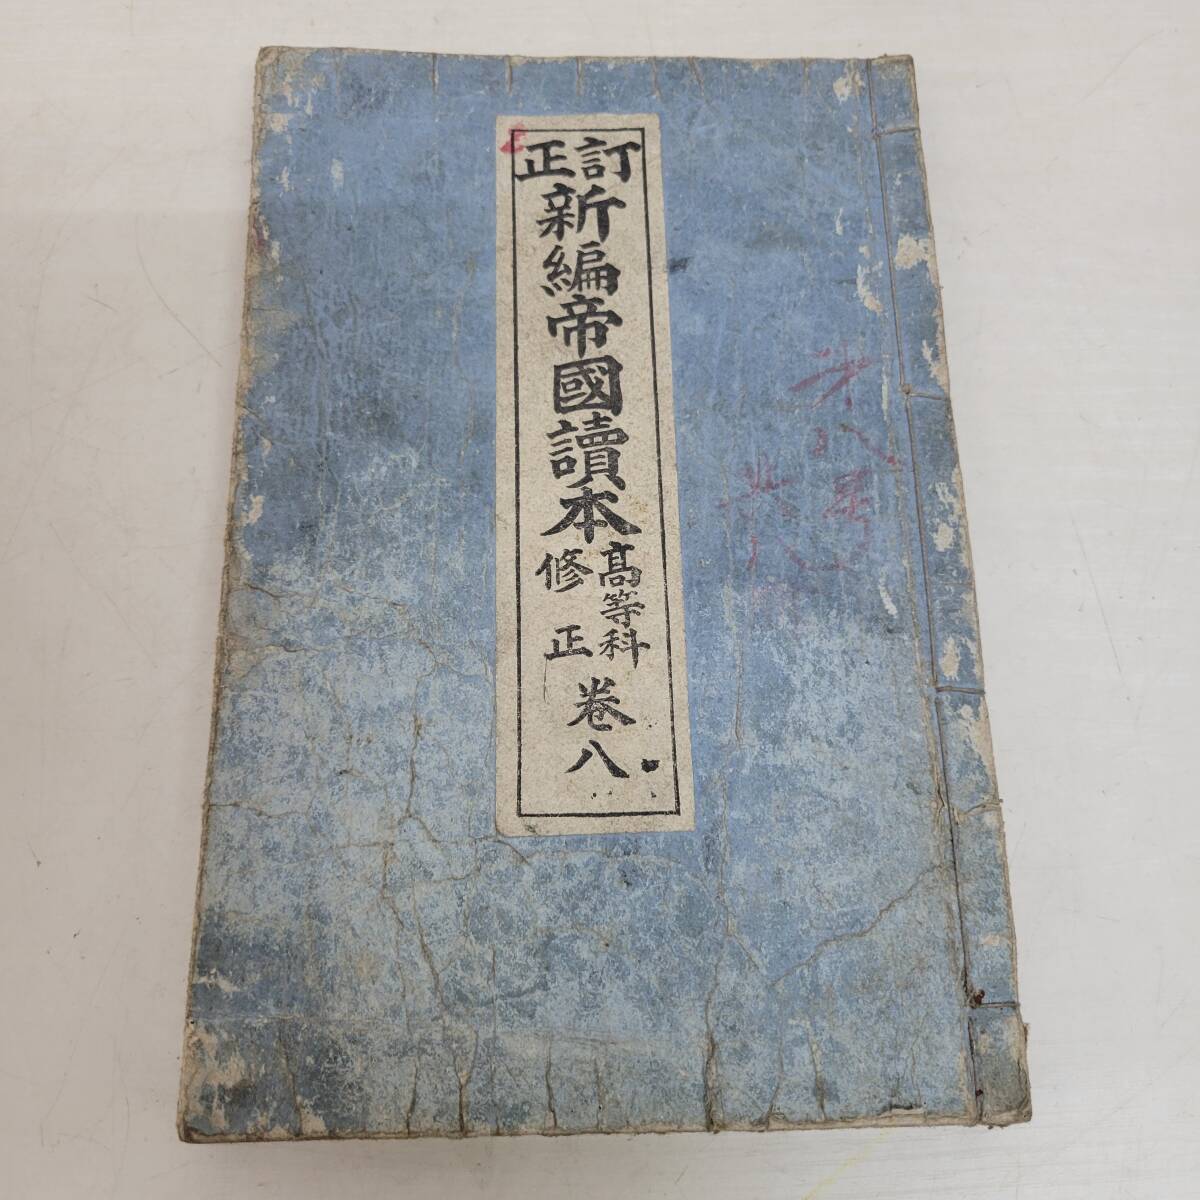 訂正
新編帝國讀本
高等科
修正
卷八